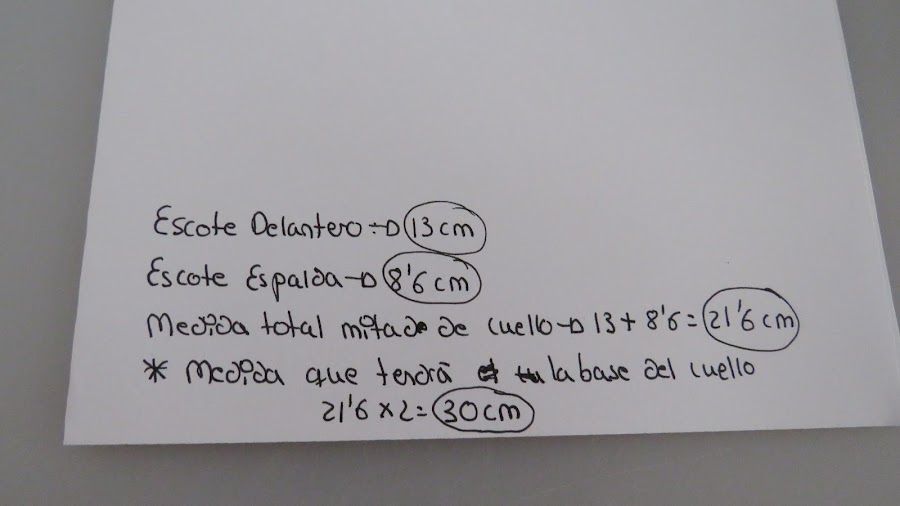 Escote Delantero → 13 cm
Escote Espalda → 8'6 cm
Medida total mitade de cuello → 13 + 8'6 = 21'6 cm
* Medida que tendrá la base del cuello
21'6 x 2 = 30 cm